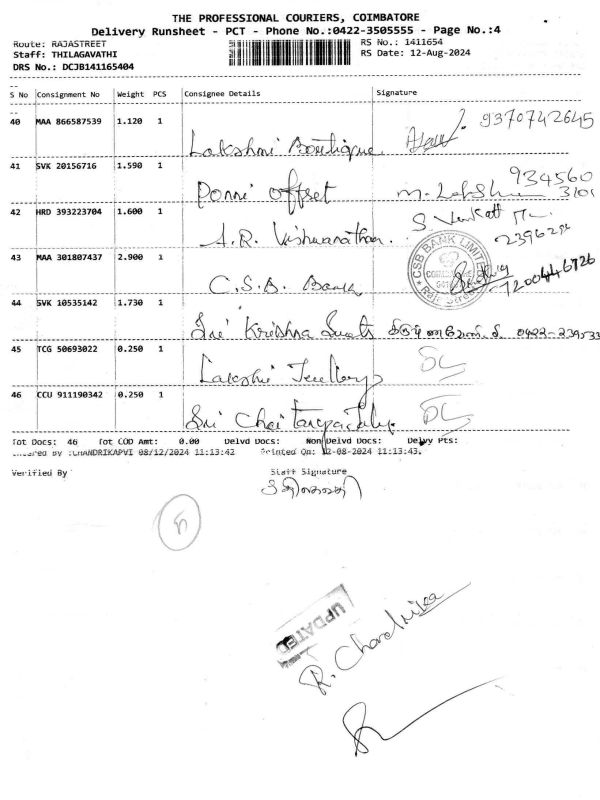 THE PROFESSIONAL COURIERS, COIMBATORE
Delivery Runsheet - PCT - Phone No.:0422-3505555 - Page No.:4
Route: RAJASTREET RS No.: 1411654
Staff: THILAGAVATHI RS Date: 12-Aug-2024
DRS No.: DCJB141165404
S No Consignment No Weight PCS Consignee Details Signature
40 MAA 866587539 1.120 1 9370742645
Lakshmi Boutique
41 SVK 20156716 1.590 1 934560
Ponni offset
42 HRD 393223704 1.600 1 S. Venkat
A.R. Vishwanathan
CSB BANK LIMITED
43 MAA 301807437 2.900 1
C.S.B. Bank 7200446726
44 SVK 10535142 1.730 1
Sri Krishna Sweets
45 TCG 50693022 0.250 1
Lakshi Jewellery
46 CCU 911190342 0.250 1
Sri Chaitanya
Tot Docs: 46 Tot COD Amt: 0.00 Delvd Docs: Non Delvd Docs: Delvy Pts:
Entered By :CHANDRIKAPVI 08/12/2024 11:13:42 Printed On: 12-08-2024 11:13:43.
Verified By Staff Signature
UPDATED
R. Chandrika